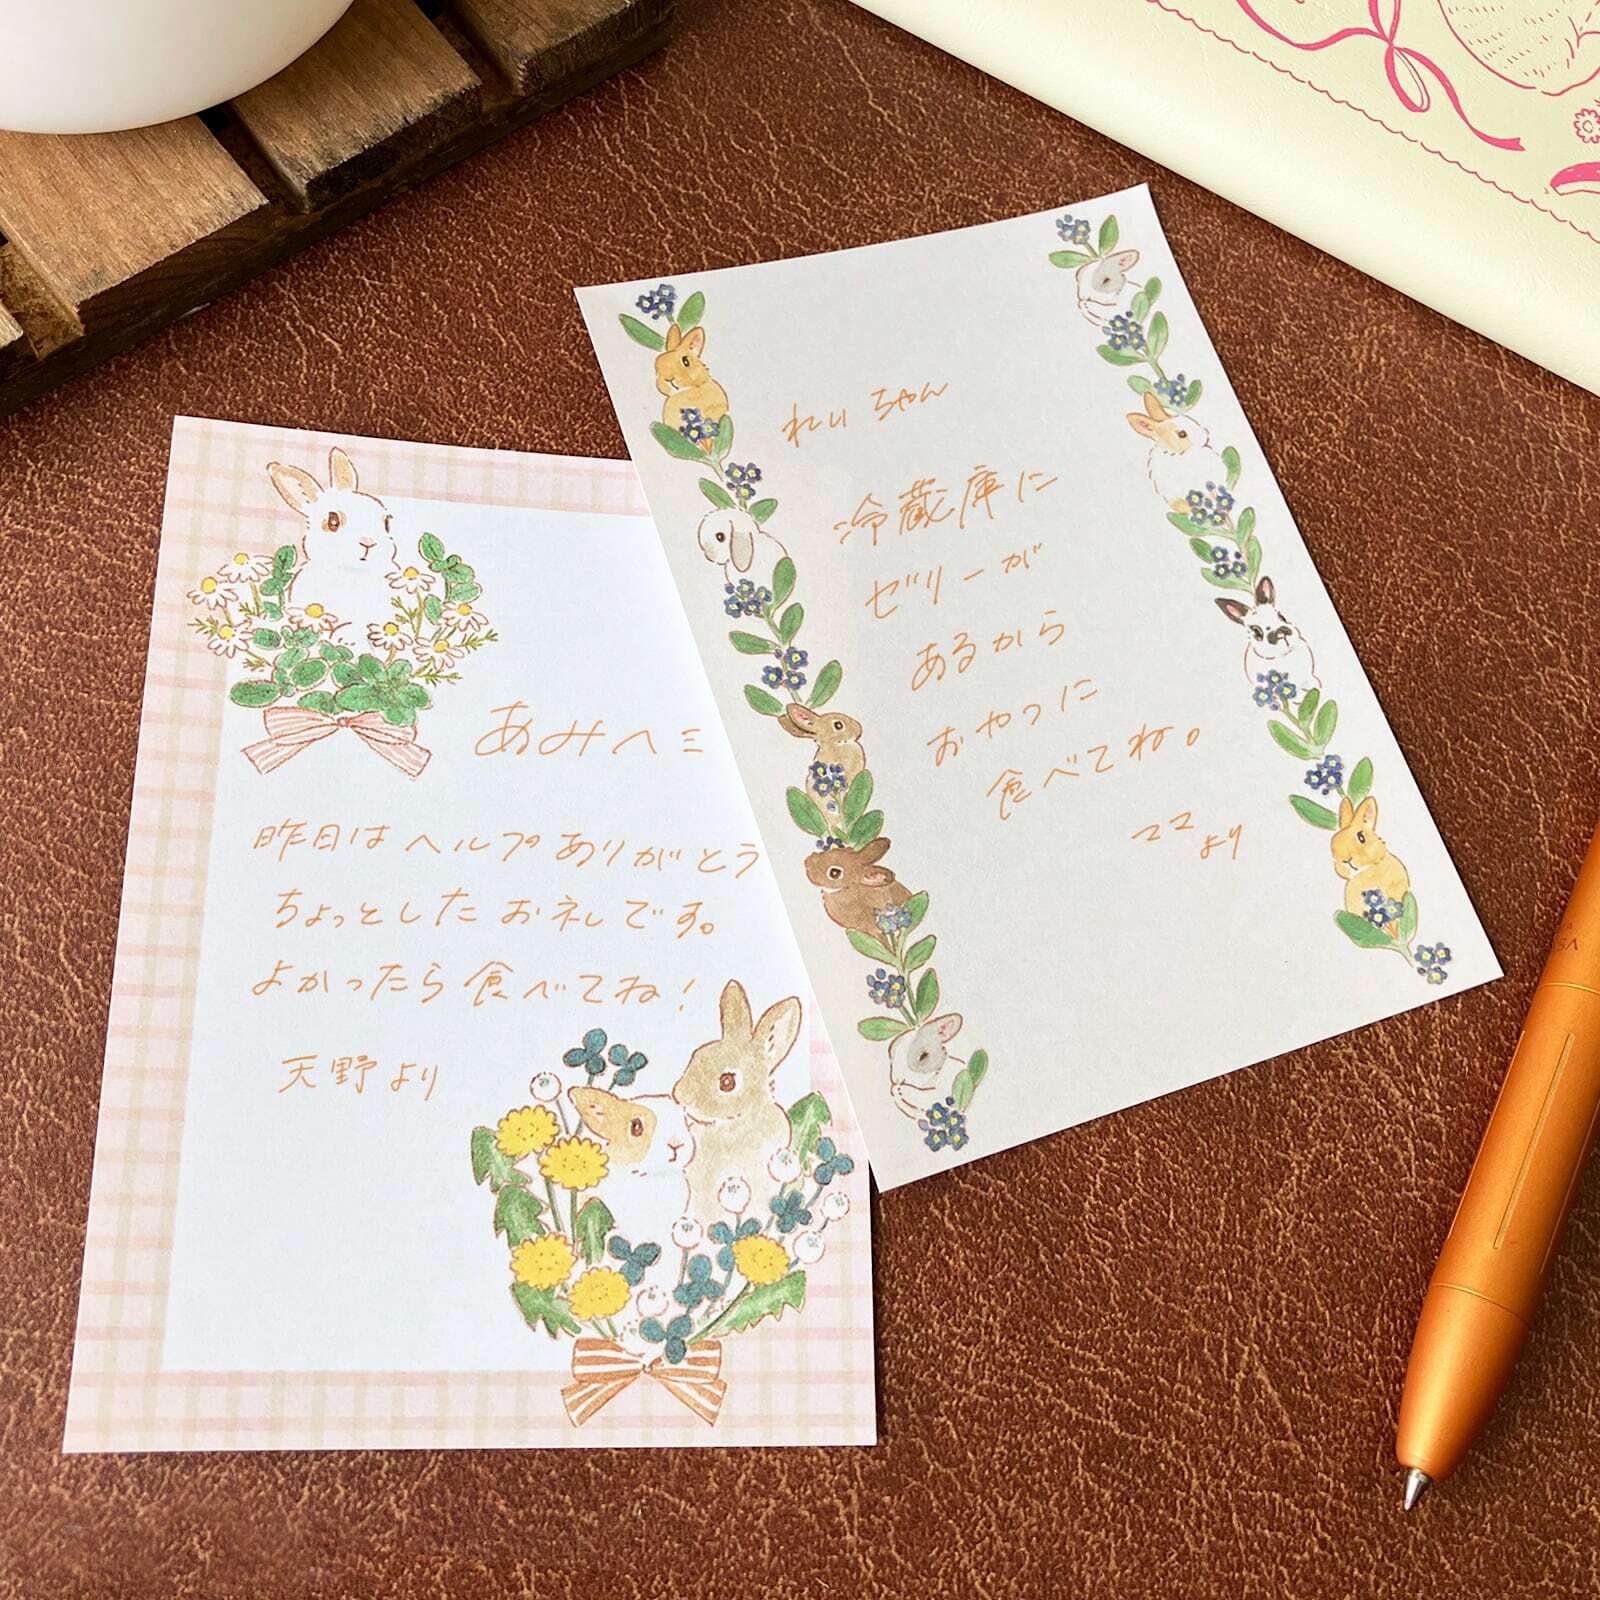 あみへ ミ
昨日は ヘルプ ありがとう
ちょっとした お礼です。
よかったら 食べてね！
天野より
れいちゃん
冷蔵庫に
ゼリーが
あるから
おやつに
食べてね。
ママ
より